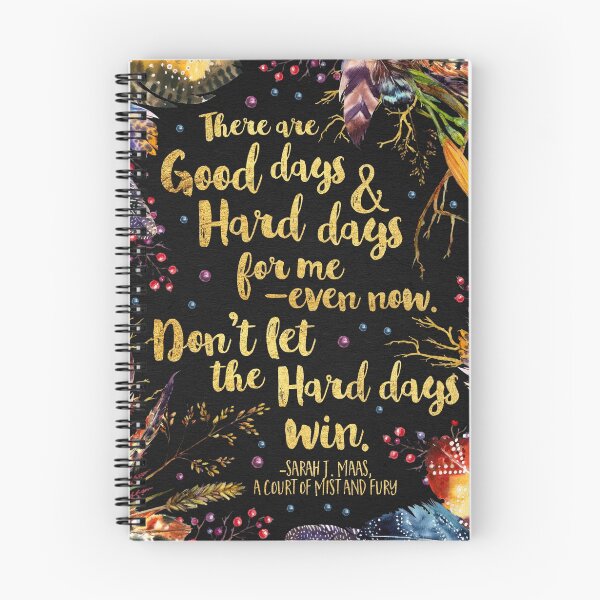 There are
Good days
& Hard days
for me
—even now.
Don't let
the Hard days
win.
-SARAH J. MAAS,
A COURT OF MIST AND FURY